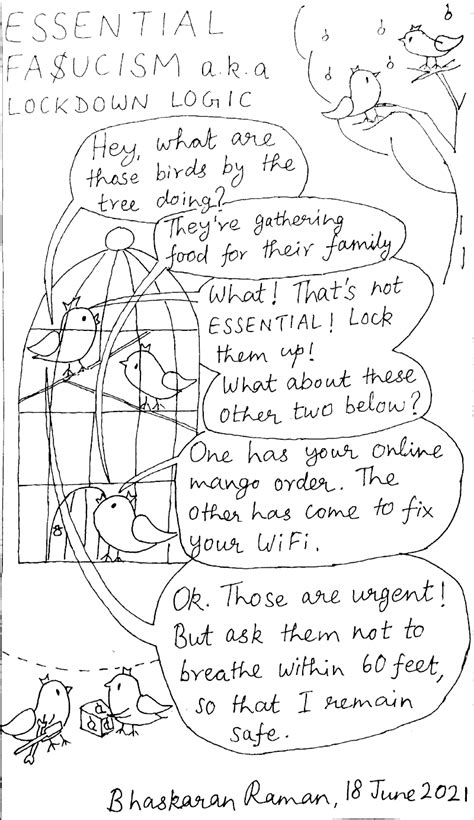 ESSENTIAL
FA$UCISM a.k.a
LOCKDOWN LOGIC
Hey, what are
those birds by the
tree doing?
They're gathering
food for their family
What! That's not
ESSENTIAL! Lock
them up!
What about these
other two below?
One has your online
mango order. The
other has come to fix
your WiFi.
Ok. Those are urgent!
But ask them not to
breathe within 60 feet,
so that I remain
safe.
Bhaskaran Raman, 18 June 2021